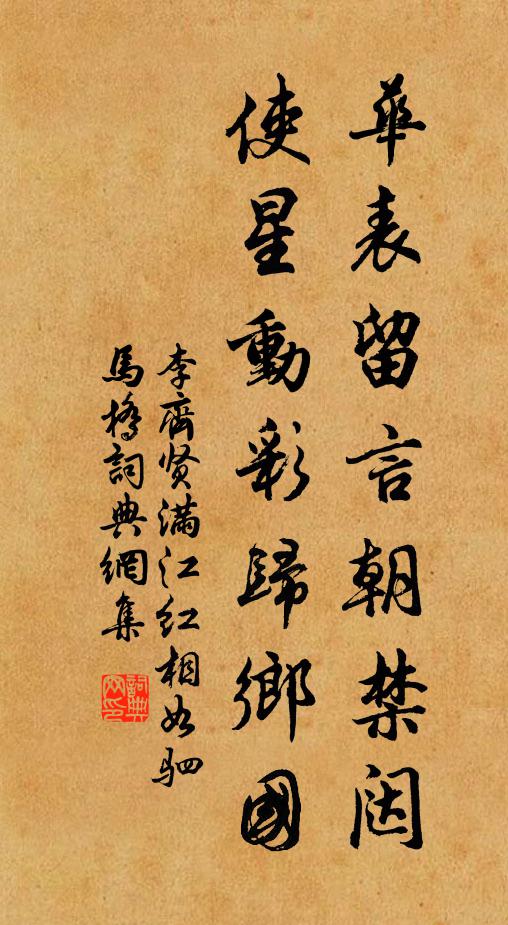 華表留言朝禁闼
使星動彩歸鄉國
李齊贤滿江红相如驷
馬橋詞典網集
詞典
网印